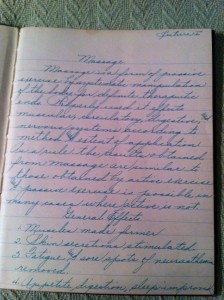 Lecture 15
Massage
Massage is a form of passive
exercise. Scientific manipulation
of the body for definite therapeutic
ends. Properly used it affects
muscular, circulatory, digestive, and
nervous systems according to
method & extent of application.
As a rule the results obtained
from massage are similar to
those obtained by active exercise
& passive exercise is possible in
many cases where active is not.
General Effects
1. Muscles made firmer
2. Skin secretions stimulated
3. Fatigue & sore spots of neurasthenia
removed
4. Appetite, digestion, sleep improved